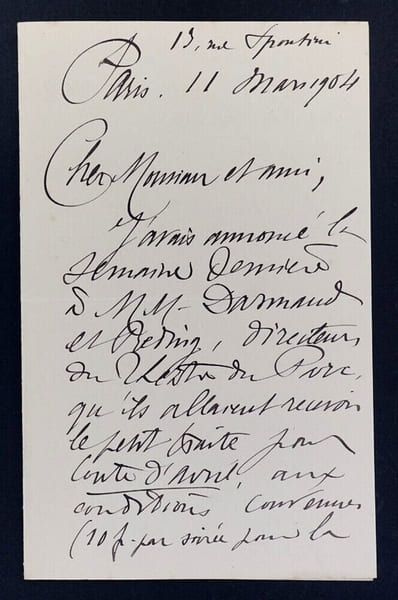 13, rue Spontini
Paris. 11 Mars 1904
Cher Monsieur et ami,
J'avais annoncé la
semaine dernière
à MM. Darmand
et Reding, directeurs
du Théâtre du Parc,
qu'ils allaient recevoir
le petit traité pour
Conte d'avril, aux
conditions convenues
(10 f. par soirée pour la